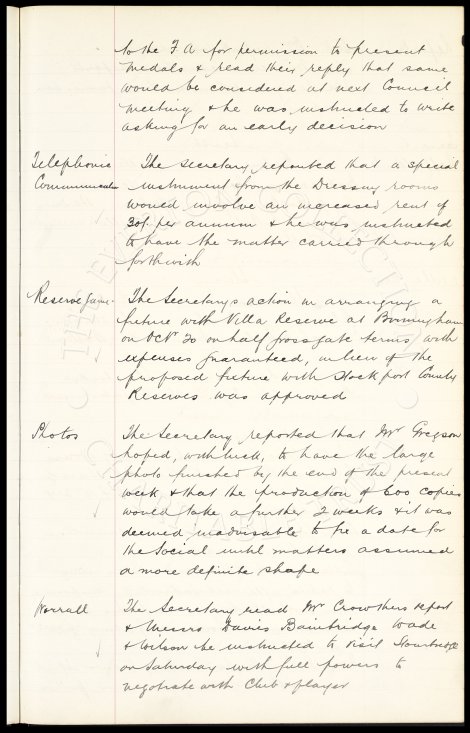 to the F A for permission to present
medals & read their reply that same
would be considered at next Council
meeting & he was instructed to write
asking for an early decision
Telephonic
Communicatn
The Secretary reported that a special
instrument from the Dressing rooms
would involve an increased rent of
30/- per annum & he was instructed
to have the matter carried through
forthwith
Reserve Game
The Secretary's action in arranging a
fixture with Villa Reserve at Birmingham
on Octr 30 on half gross gate terms, with
expenses guaranteed, in lieu of the
proposed fixture with Stockport County
Reserves was approved
Photos
The Secretary reported that Mr Gregson
hoped, with luck, to have the large
photo finished by the end of the present
week, & that the production of 600 copies
would take a further 2 weeks & it was
deemed inadvisable to fix a date for
the Social until matters assumed
a more definite shape
Worrall
The Secretary read Mr Crowthers report
& Messrs Davis Bainbridge Wade
& Wilson be instructed to visit Stourbridge
on Saturday with full powers to
negotiate with Club & player
THE EVERTON COLLECTION